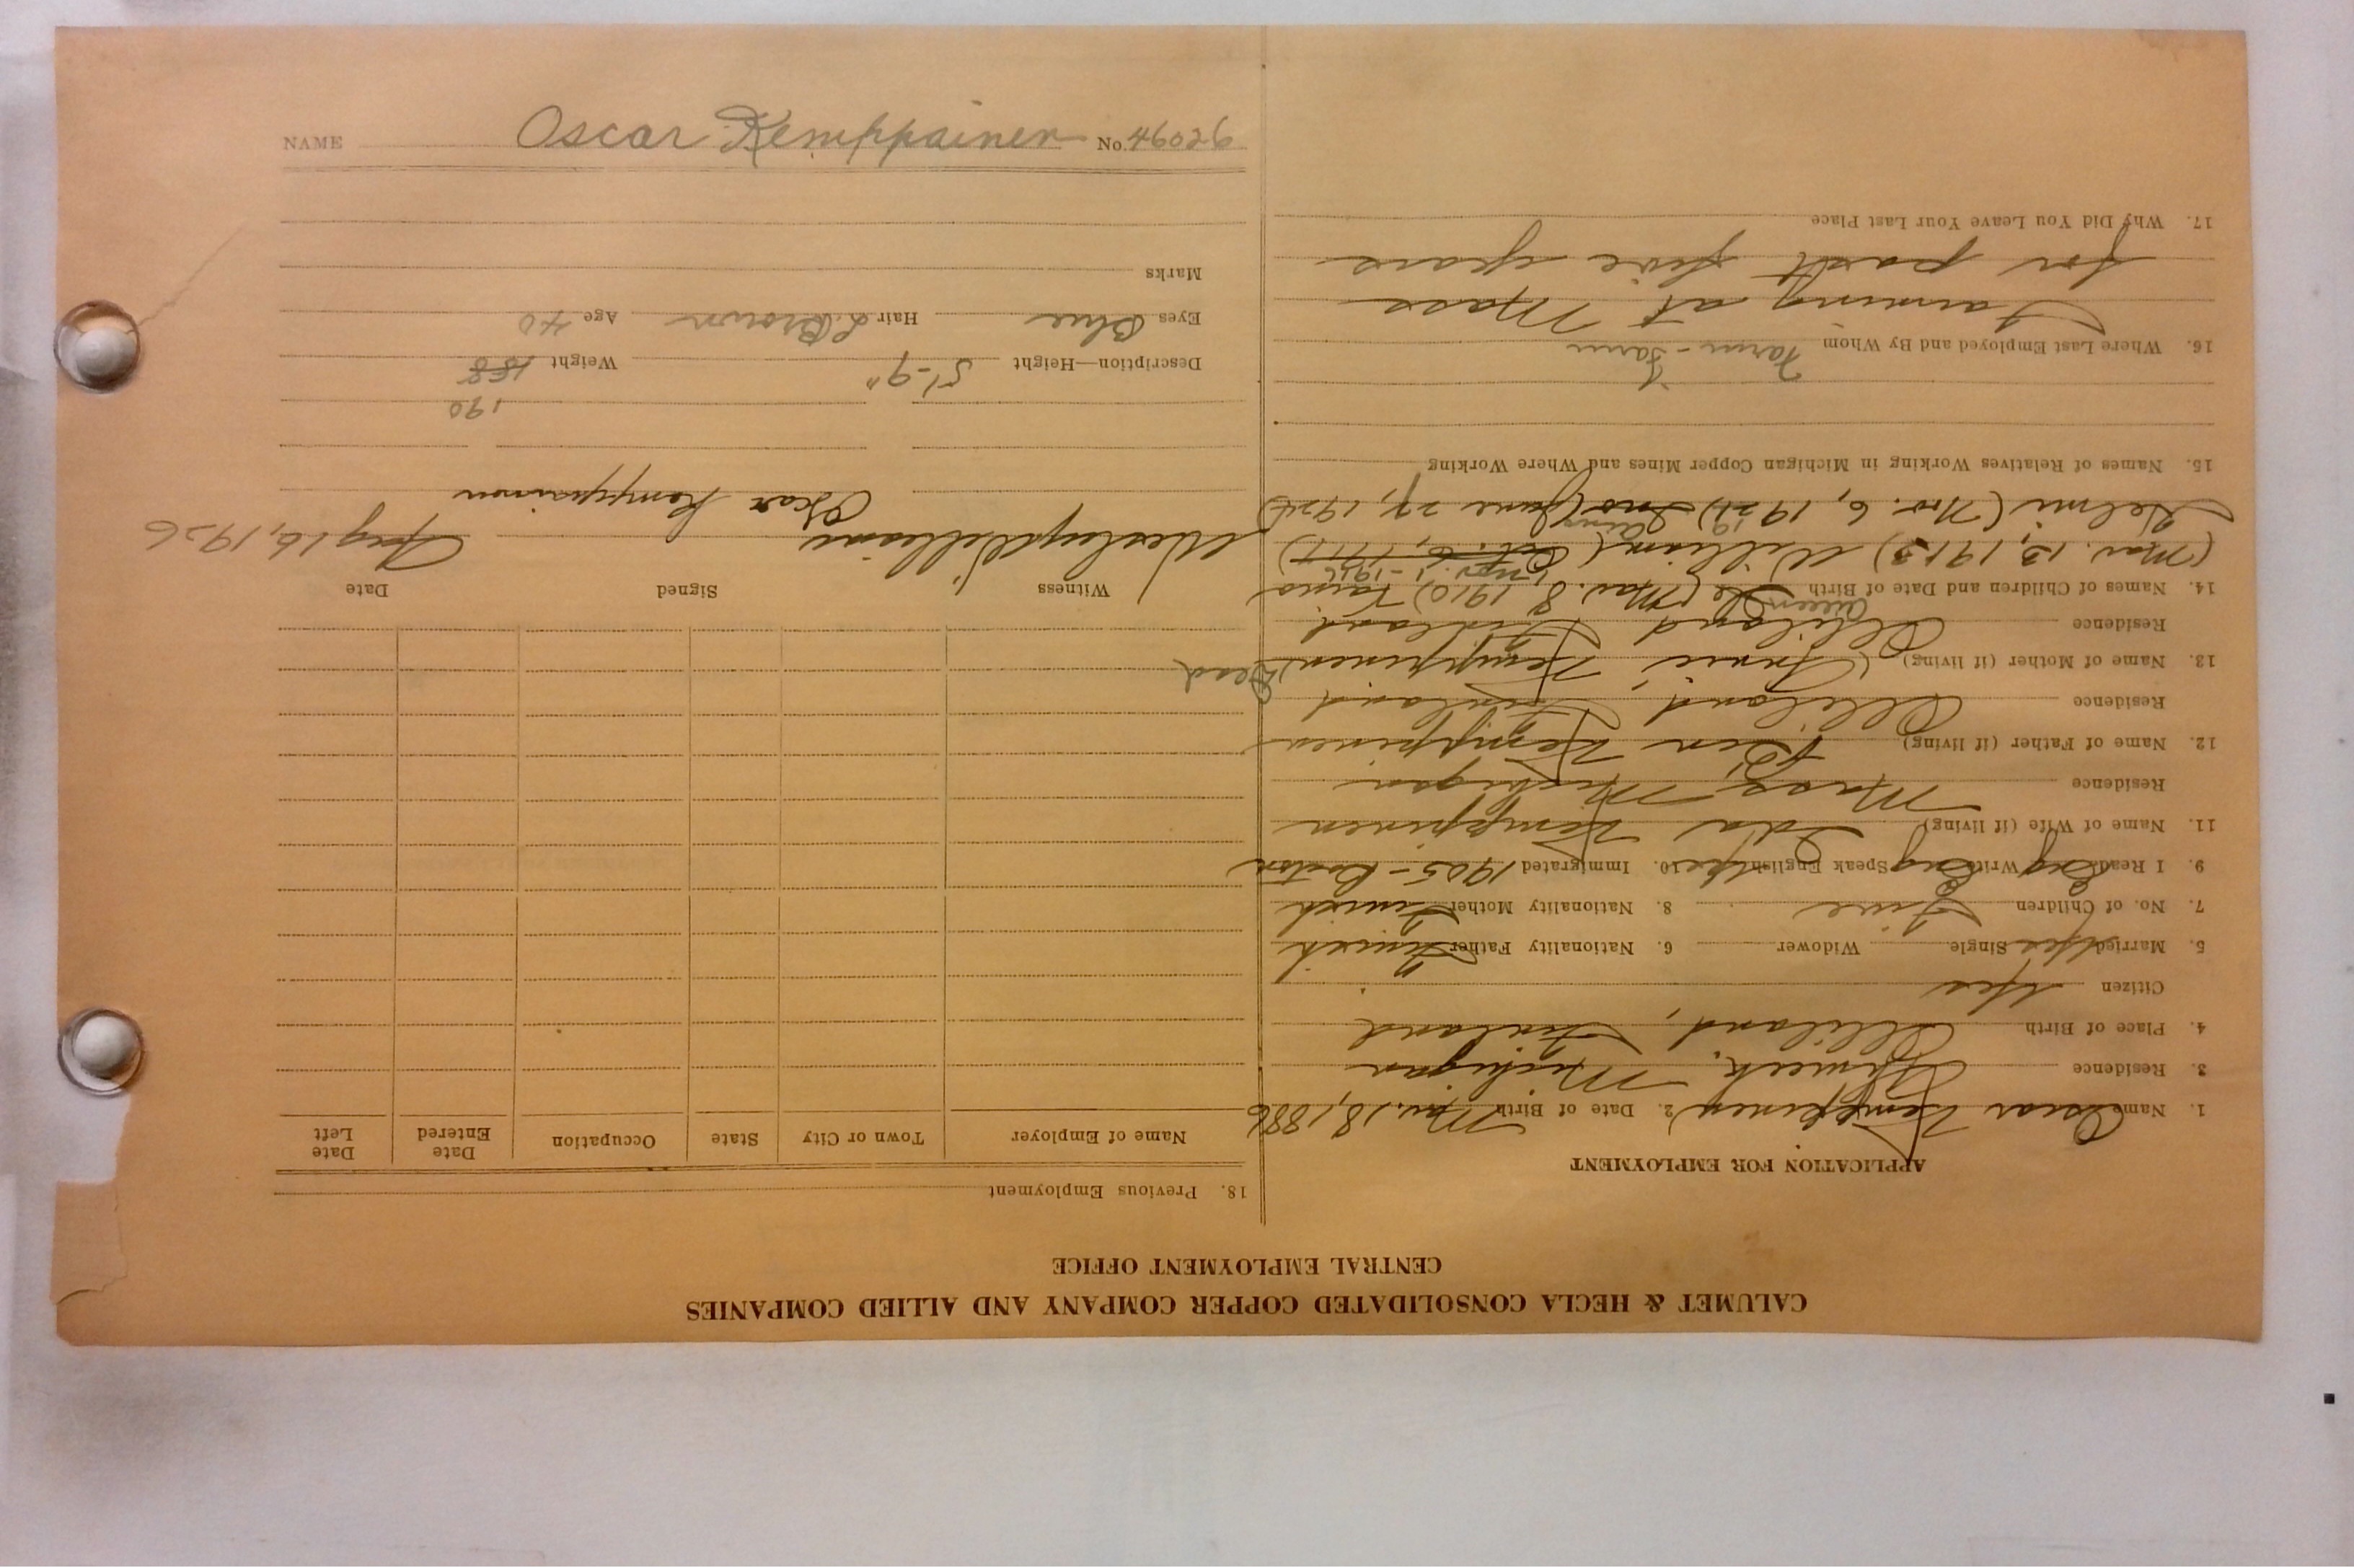 CALUMET & HECLA CONSOLIDATED COPPER COMPANY AND ALLIED COMPANIES
CENTRAL EMPLOYMENT OFFICE
APPLICATION FOR EMPLOYMENT
1. Name Oscar Kemppinen 2. Date of Birth Mar. 18, 1886
3. Residence Ahmeek, Michigan
4. Place of Birth Finland
Citizen Yes
5. Married Yes Single Widower 6. Nationality Father Finnish
7. No. of Children Five 8. Nationality Mother Finnish
9. I Read Eng Write Eng Speak English Yes 10. Immigrated 1905 - Boston
11. Name of Wife (if living) Ida Kemppinen
Residence Mass, Michigan
12. Name of Father (if living) Kemppinen
Residence Finland
13. Name of Mother (if living) Kemppinen Dead
Residence Finland
14. Names of Children and Date of Birth (Mar. 8, 1910)
Aileen
(Mar. 13, 1913) William (Oct. 6, 1911)
Helmi (Nov. 6, 1921) (June 27, 1924)
15. Names of Relatives Working in Michigan Copper Mines and Where Working
16. Where Last Employed and By Whom Farm
Farming at Mass
for past five years
17. Why Did You Leave Your Last Place
18. Previous Employment
Name of Employer Town or City State Occupation Date Entered Date Left
Witness Signed Date
Wesley Williams Oscar Kemppainen Aug 16, 1926
190
Description—Height 5'-9" Weight 188
Eyes Blue Hair L. Brown Age 40
Marks
NAME Oscar Kemppainen No. 46026